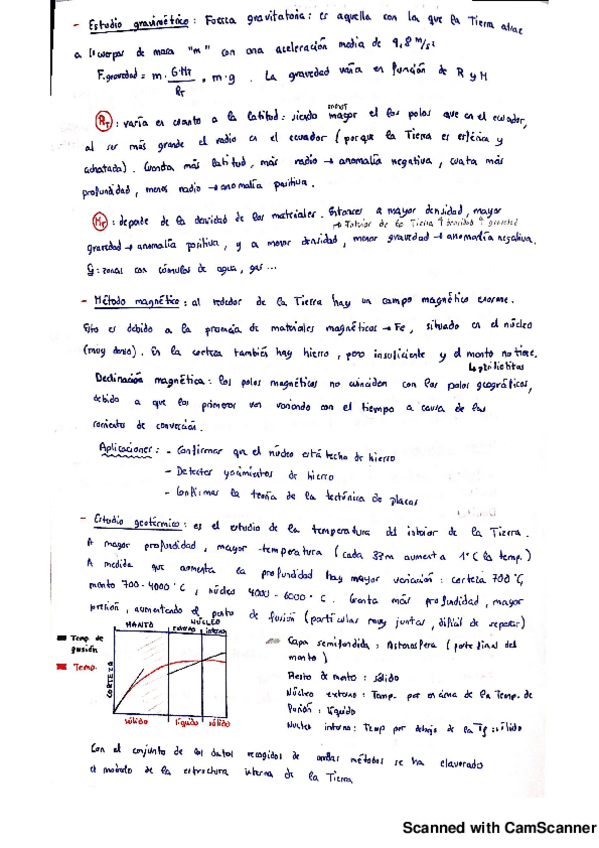 - Estudio gravimétrico: Fuerza gravitatoria: es aquella con la que la Tierra atrae
a los cuerpos de masa "m" con una aceleración media de 9,8 m/s²
F.gravedad = m · G·MT / RT = m·g . La gravedad varía en función de R y M
RT : varía en cuanto a la latitud: siendo menor mayor el los polos que en el ecuador,
al ser más grande el radio en el ecuador (porque la Tierra es esférica y
achatada). Cuanta más latitud, más radio → anomalía negativa, cuata más
profundidad, menos radio → anomalía positiva.
MT : depende de la densidad de los materiales. Entonces a mayor densidad, mayor
→ Interior de la Tierra ↑ densidad ↑ gravedad
gravedad → anomalía positiva, y a menor densidad, menor gravedad → anomalía negativa.
Ej: zonas con cúmulos de agua, gas ...
- Método magnético: al rededor de la Tierra hay un campo magnético enorme.
Esto es debido a la presencia de materiales magnéticos → Fe, situado en el núcleo
(muy denso). En la corteza también hay hierro, pero insuficiente y el manto no tiene.
Declinación magnética: los polos magnéticos no coinciden con los polos geográficos,
debido a que los primeros van variando con el tiempo a causa de las
corrientes de convección.
Aplicaciones: - Confirmar que el núcleo está hecho de hierro
- Detectar yacimientos de hierro
- Confirmar la teoría de la tectónica de placas
- Estudio geotérmico: es el estudio de la temperatura del interior de la Tierra.
A mayor profundidad, mayor temperatura (cada 33m aumenta 1°C la temp.)
A medida que aumenta la profundidad hay mayor variación: corteza 700°C,
manto 700-4000°C, núcleo 4000-6000°C. Cuanta más profundidad, mayor
presión, aumentando el punto de fusión (partículas muy juntas, difícil de separar)
MANTO NÚCLEO
externo interno
Temp. de fusión
Temp.
CORTEZA
sólido líquido sólido
Capa semifundida: Astenosfera (parte final del
manto)
Resto de manto: sólido
Núcleo externo: Temp. por encima de la Temp. de
fusión: líquido
Nucleo interno: Temp por debajo de la Tf: sólido
Con el conjunto de los datos recogidos de ambos métodos se ha elaverado
el modelo de la estructura interna de la Tierra
Scanned with CamScanner